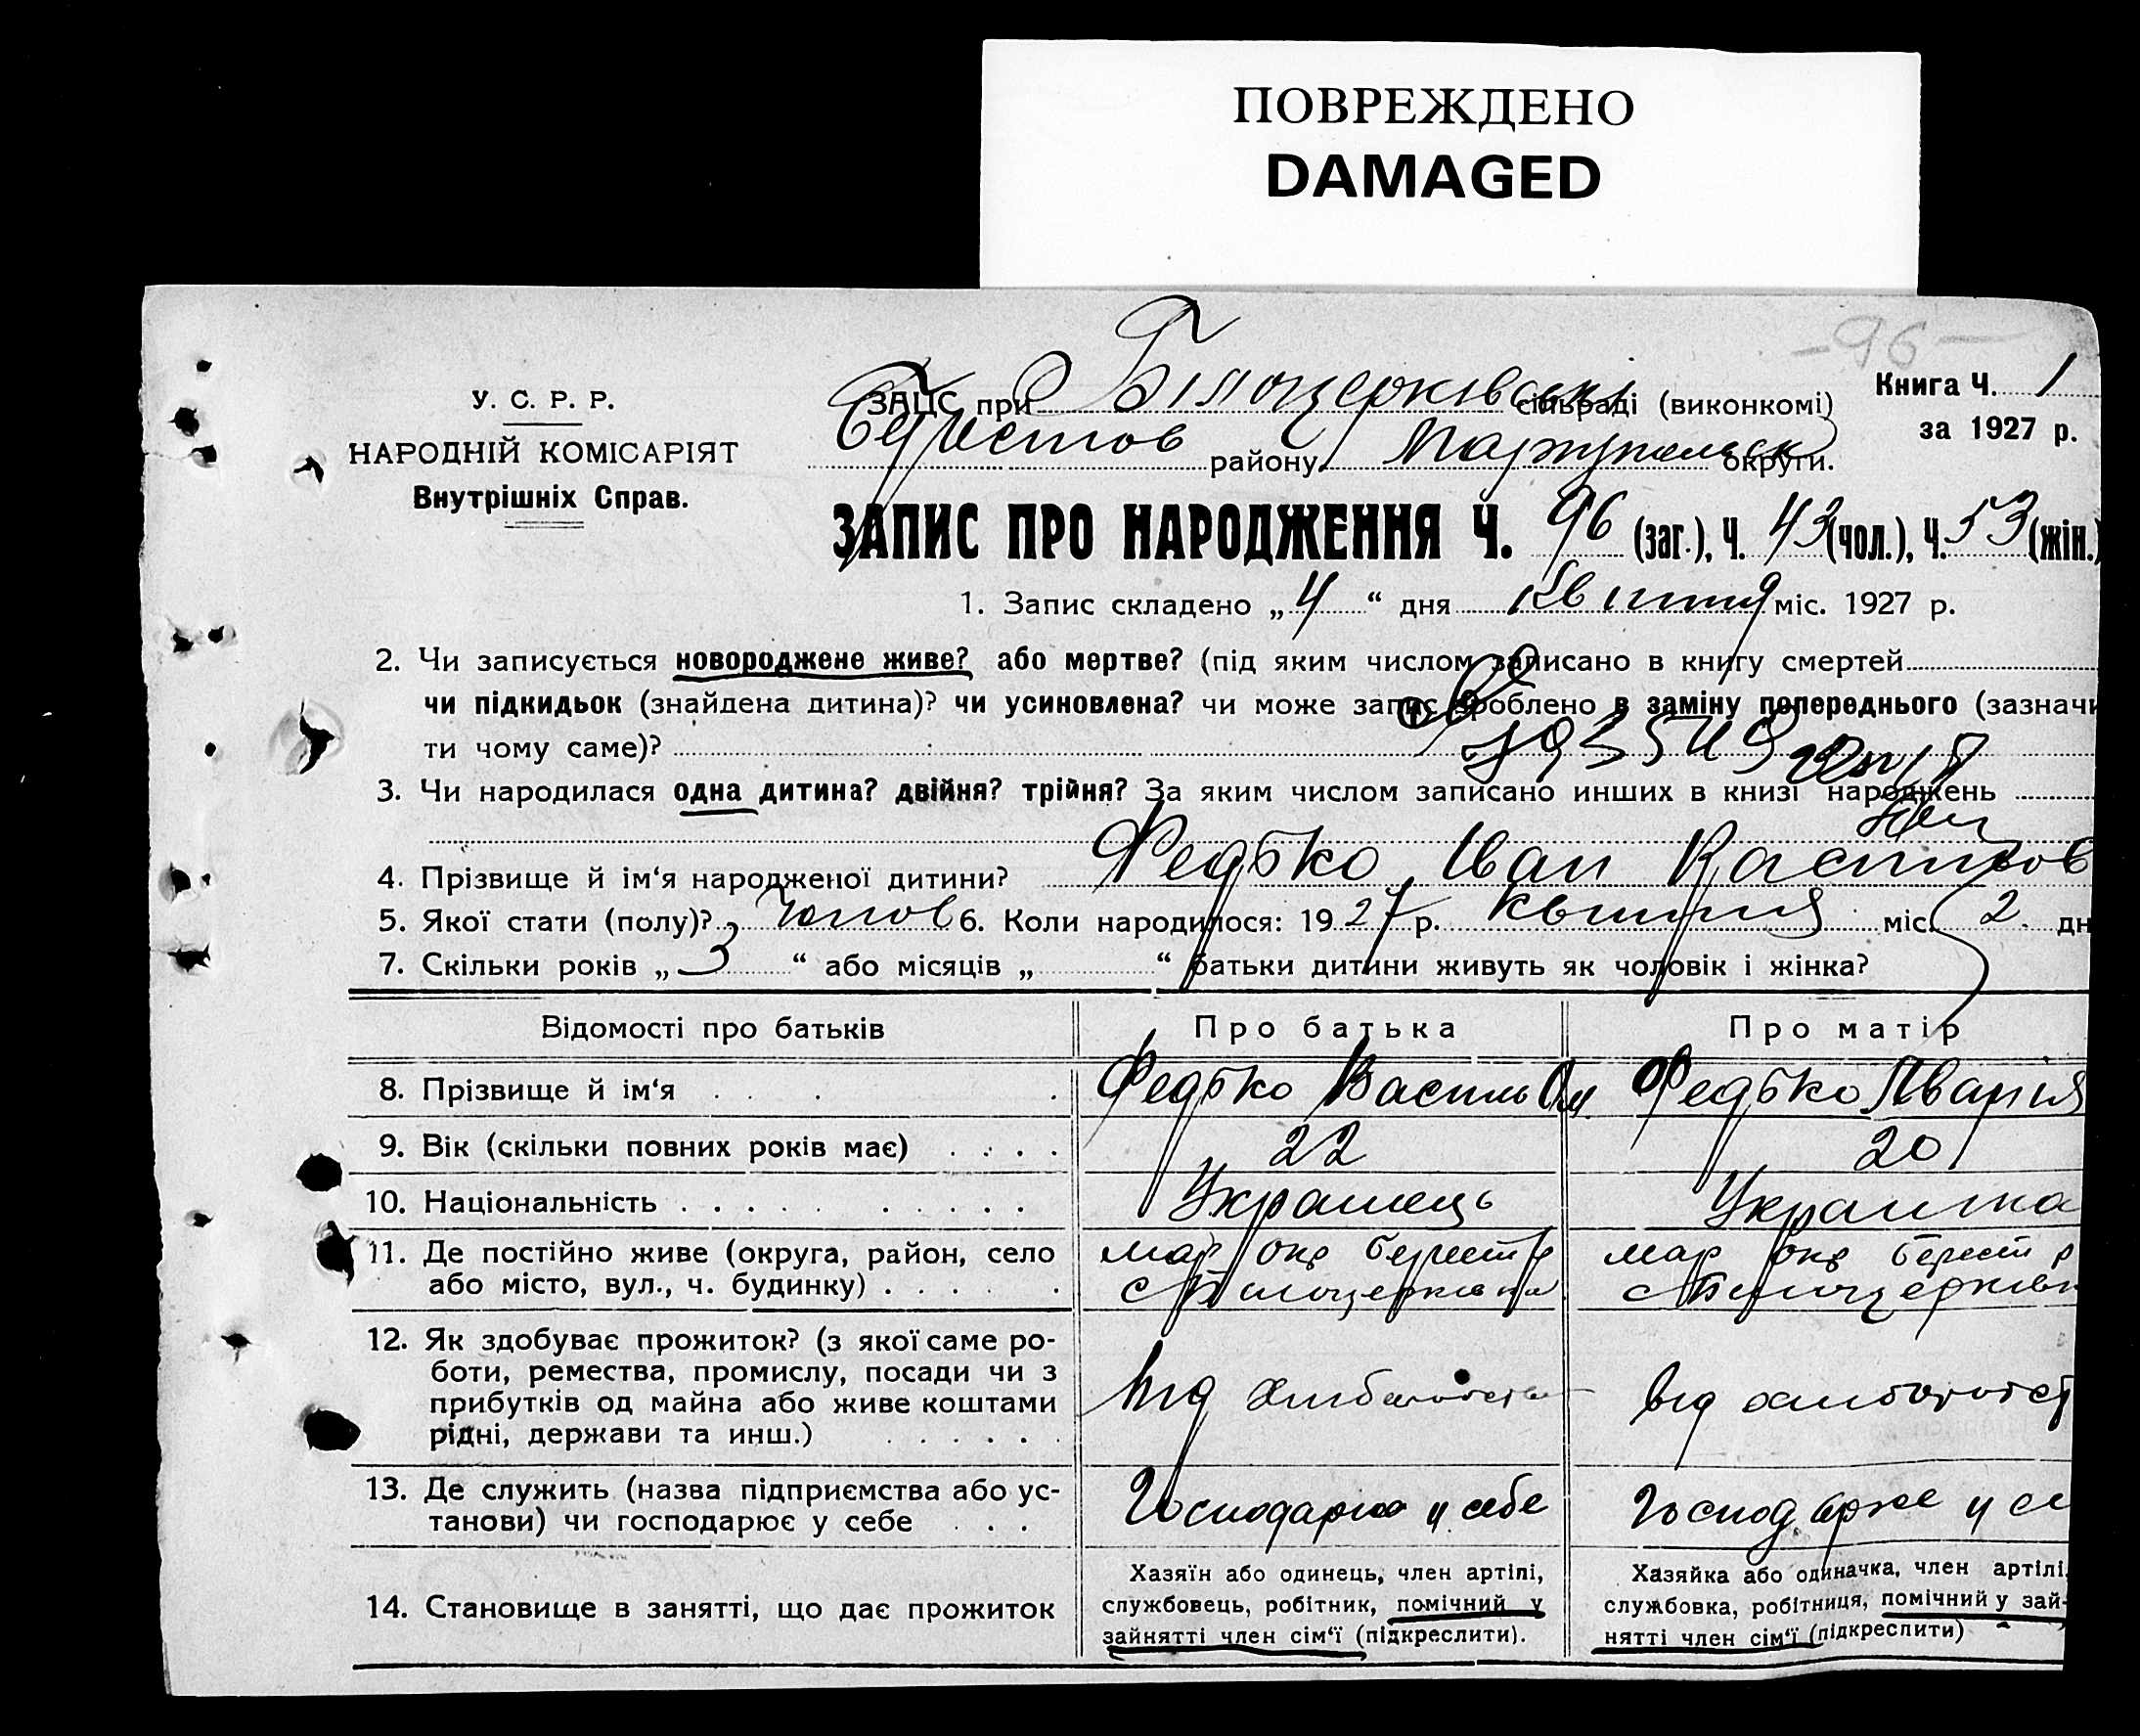 ПОВРЕЖДЕНО
DAMAGED
-96-
У. С. Р. Р.
НАРОДНІЙ КОМІСАРІЯТ
Внутрішніх Справ.
ЗАЦС при Білоцерківські сільраді (виконкомі)
Берестов району Маріупольск округи.
Книга Ч. 1
за 1927 р.
ЗАПИС ПРО НАРОДЖЕННЯ Ч. 96 (заг.), Ч. 43 (чол.), Ч. 53 (жін.)
1. Запис складено „4“ дня квітня міс. 1927 р.
2. Чи записується новороджене живе? або мертве? (під яким числом записано в книгу смертей
чи підкидьок (знайдена дитина)? чи усиновлена? чи може запис зроблено в заміну попереднього (зазначи
ти чому саме)?
3. Чи народилася одна дитина? двійня? трійня? За яким числом записано инших в книзі народжень
4. Прізвище й ім‘я народженої дитини? Федько Іван Васильов
5. Якої стати (полу)? Чолов 6. Коли народилося: 1927 р. Квітня міс. 2 дн
7. Скільки років „3“ або місяців „ “ батьки дитини живуть як чоловік і жінка?
Відомості про батьків Про батька Про матір
8. Прізвище й ім‘я Федько Василь Федько Марія
9. Вік (скільки повних років має) 22 20
10. Національність Украінець Украінка
11. Де постійно живе (округа, район, село мар окр берест р мар окр берест р
або місто, вул., ч. будинку) с Білоцерківка с Білоцерківк
12. Як здобуває прожиток? (з якої саме ро-
боти, ремества, промислу, посади чи з
прибутків од майна або живе коштами від хліборобства від хліборобст
рідні, держави та инш.)
13. Де служить (назва підприємства або ус- Господарює у себе Господарює у се
танови) чи господарює у себе
14. Становище в занятті, що дає прожиток
Хазяїн або одинець, член артілі,
службовець, робітник, помічний у
зайнятті член сім‘ї (підкреслити).
Хазяйка або одиначка, член артілі,
службовка, робітниця, помічний у зай-
нятті член сім‘ї (підкреслити)